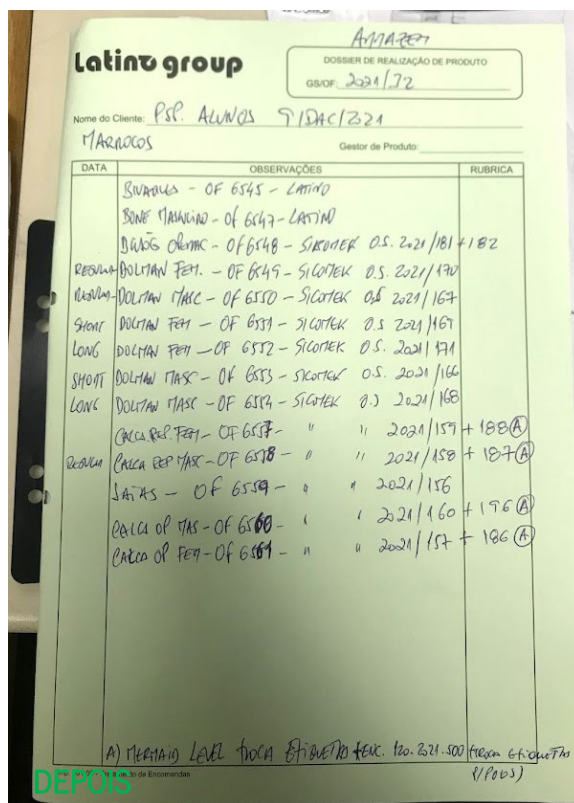 ARMAZEM
Latino group
DOSSIER DE REALIZAÇÃO DE PRODUTO
GS/OF: 2021/32
Nome do Cliente: PSP. ALUNOS 9/DAC/2021
MARROCOS
Gestor de Produto:
DATA OBSERVAÇÕES RUBRICA
BIVAQUES - OF 6545 - LATINO
BONE MASCULINO - OF 6547 - LATINO
OF 6548 - SICOMEK O.S. 2021/181 + 182
REGULAR DOLMAN FEM. - OF 6549 - SICOMEK O.S. 2021/170
REGULAR DOLMAN MASC - OF 6550 - SICOMEK O.S 2021/167
SHORT DOLMAN FEM - OF 6551 - SICOMEK O.S 2021/169
LONG DOLMAN FEM - OF 6552 - SICOMEK O.S. 2021/171
SHORT DOLMAN MASC - OF 6553 - SICOMEK O.S. 2021/166
LONG DOLMAN MASC - OF 6554 - SICOMEK O.S 2021/168
CALCA REP. FEM - OF 6557 - " " 2021/159 + 188 (A)
REGULAR CALCA REP MASC - OF 6558 - " " 2021/158 + 187 (A)
SAIAS - OF 6559 - " " 2021/156
CALCA OP MAS - OF 6560 - " " 2021/160 + 196 (A)
CALCA OP FEM - OF 6561 - " " 2021/157 + 186 (A)
A) MERMAID LEVEL TROCA ETIQUETAS + ENC. 120.2021.500 (TROCA ETIQUETAS
de Encomendas
DEPOIS